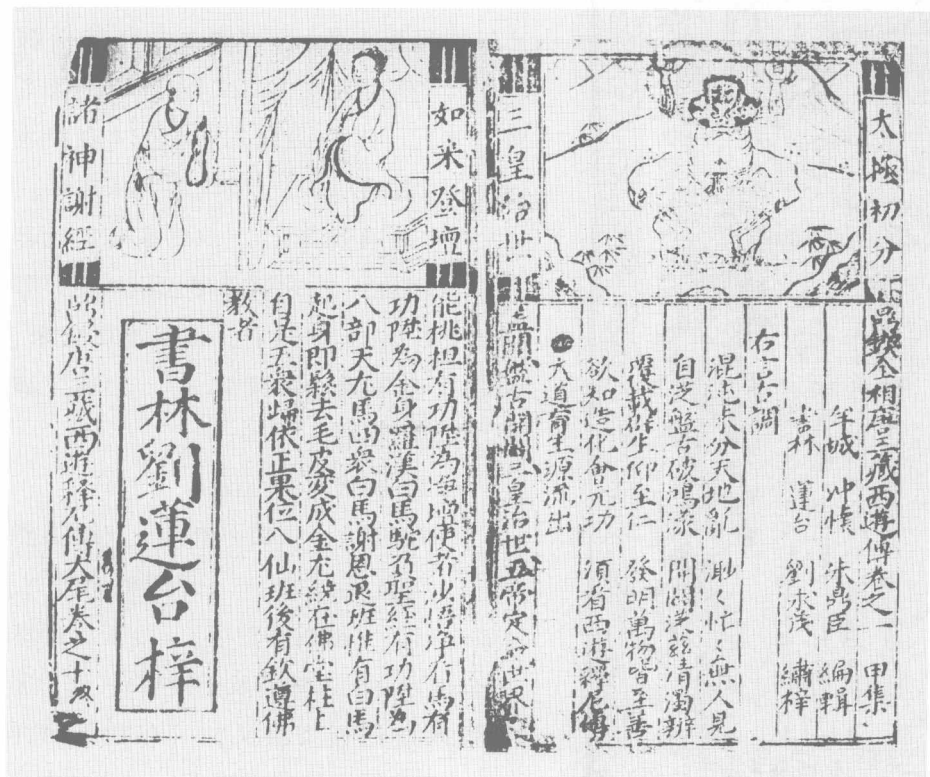 太極初分
三皇治世
全相唐三藏西遊傳卷之一 甲集
羊城 冲懷 朱鼎臣 編輯
書林 蓮台 劉求茂 繡梓
右言古調
混沌未分天地亂 渺〻忙〻無人見
自從盤古破鴻濛 開闢從茲清濁辨
覆載群生仰至仁 發明萬物皆至善
欲知造化會元功 須看西遊釋尼傳
大道育生源流出
盖聞盤古開闢三皇治世五帝定倫世界
如来登壇
諸神謝經
能桃担有功陞為淨壇使者沙悟淨有馬
功陞為金身羅漢白馬駝乃聖經有功陞為
八部天尨馬四衆白馬謝恩退班惟有白馬
起身即鬆去毛皮变成金尨繞在佛堂柱上
自是五衆歸依正果位八仙班後有欽遵佛
教者
書林劉蓮台梓
唐三藏西遊釋尼傳大尾卷之十終